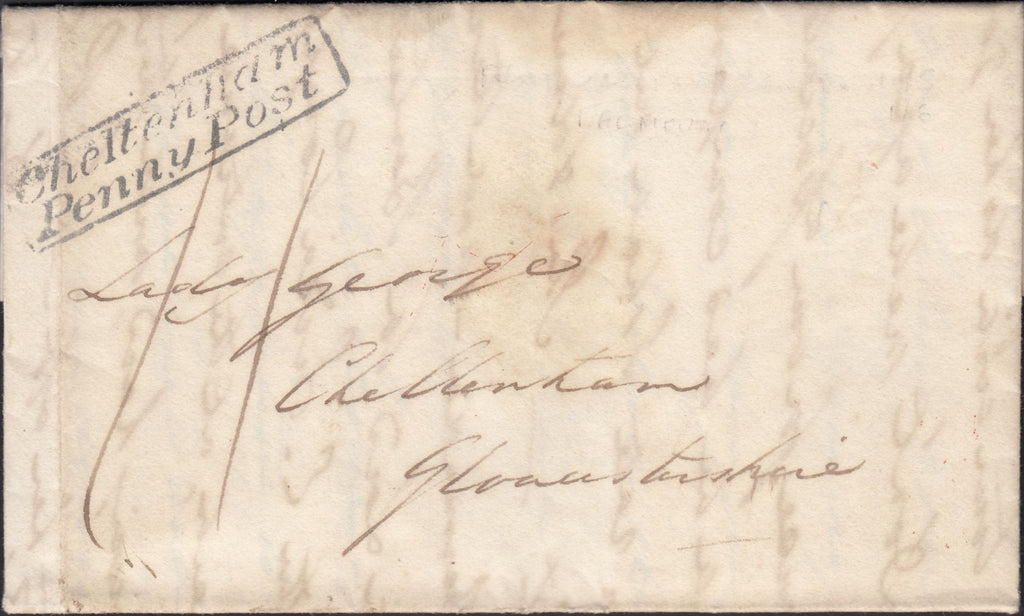 Cheltenham
Penny Post
Lady George
Cheltenham
Gloucestershire